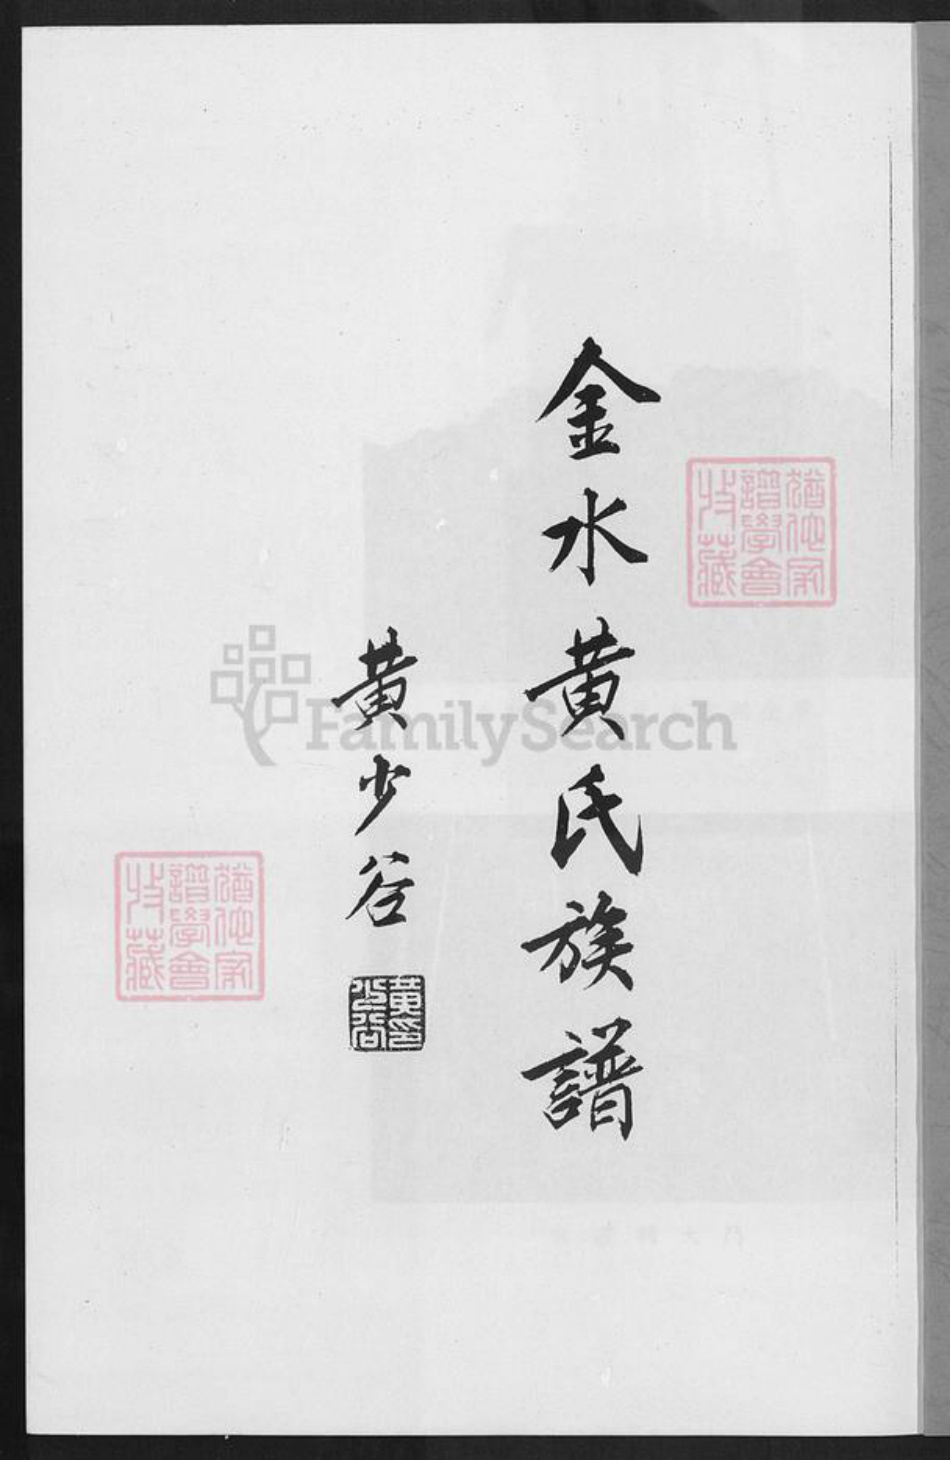 金水黄氏族譜
黄少谷
黄少谷印
猶他家譜學會收藏
猶他家譜學會收藏
FamilySearch